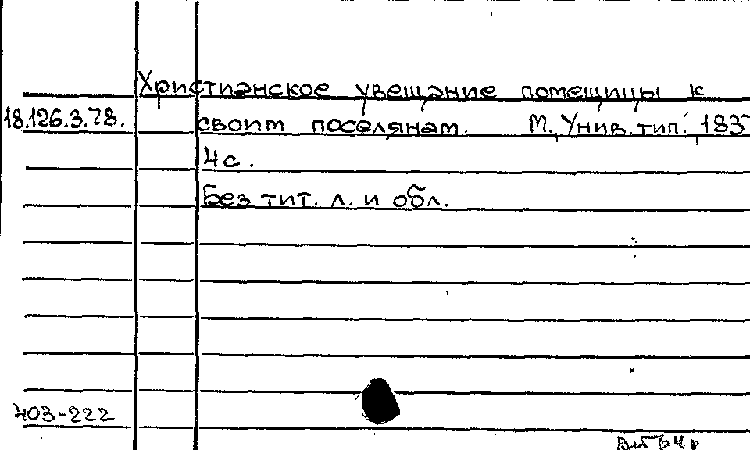 Христианское увещание помещицы к
18.126.3.78. своим поселянам. М., Унив. тип. 1835
4с.
Без тит. л. и обл.
403-222